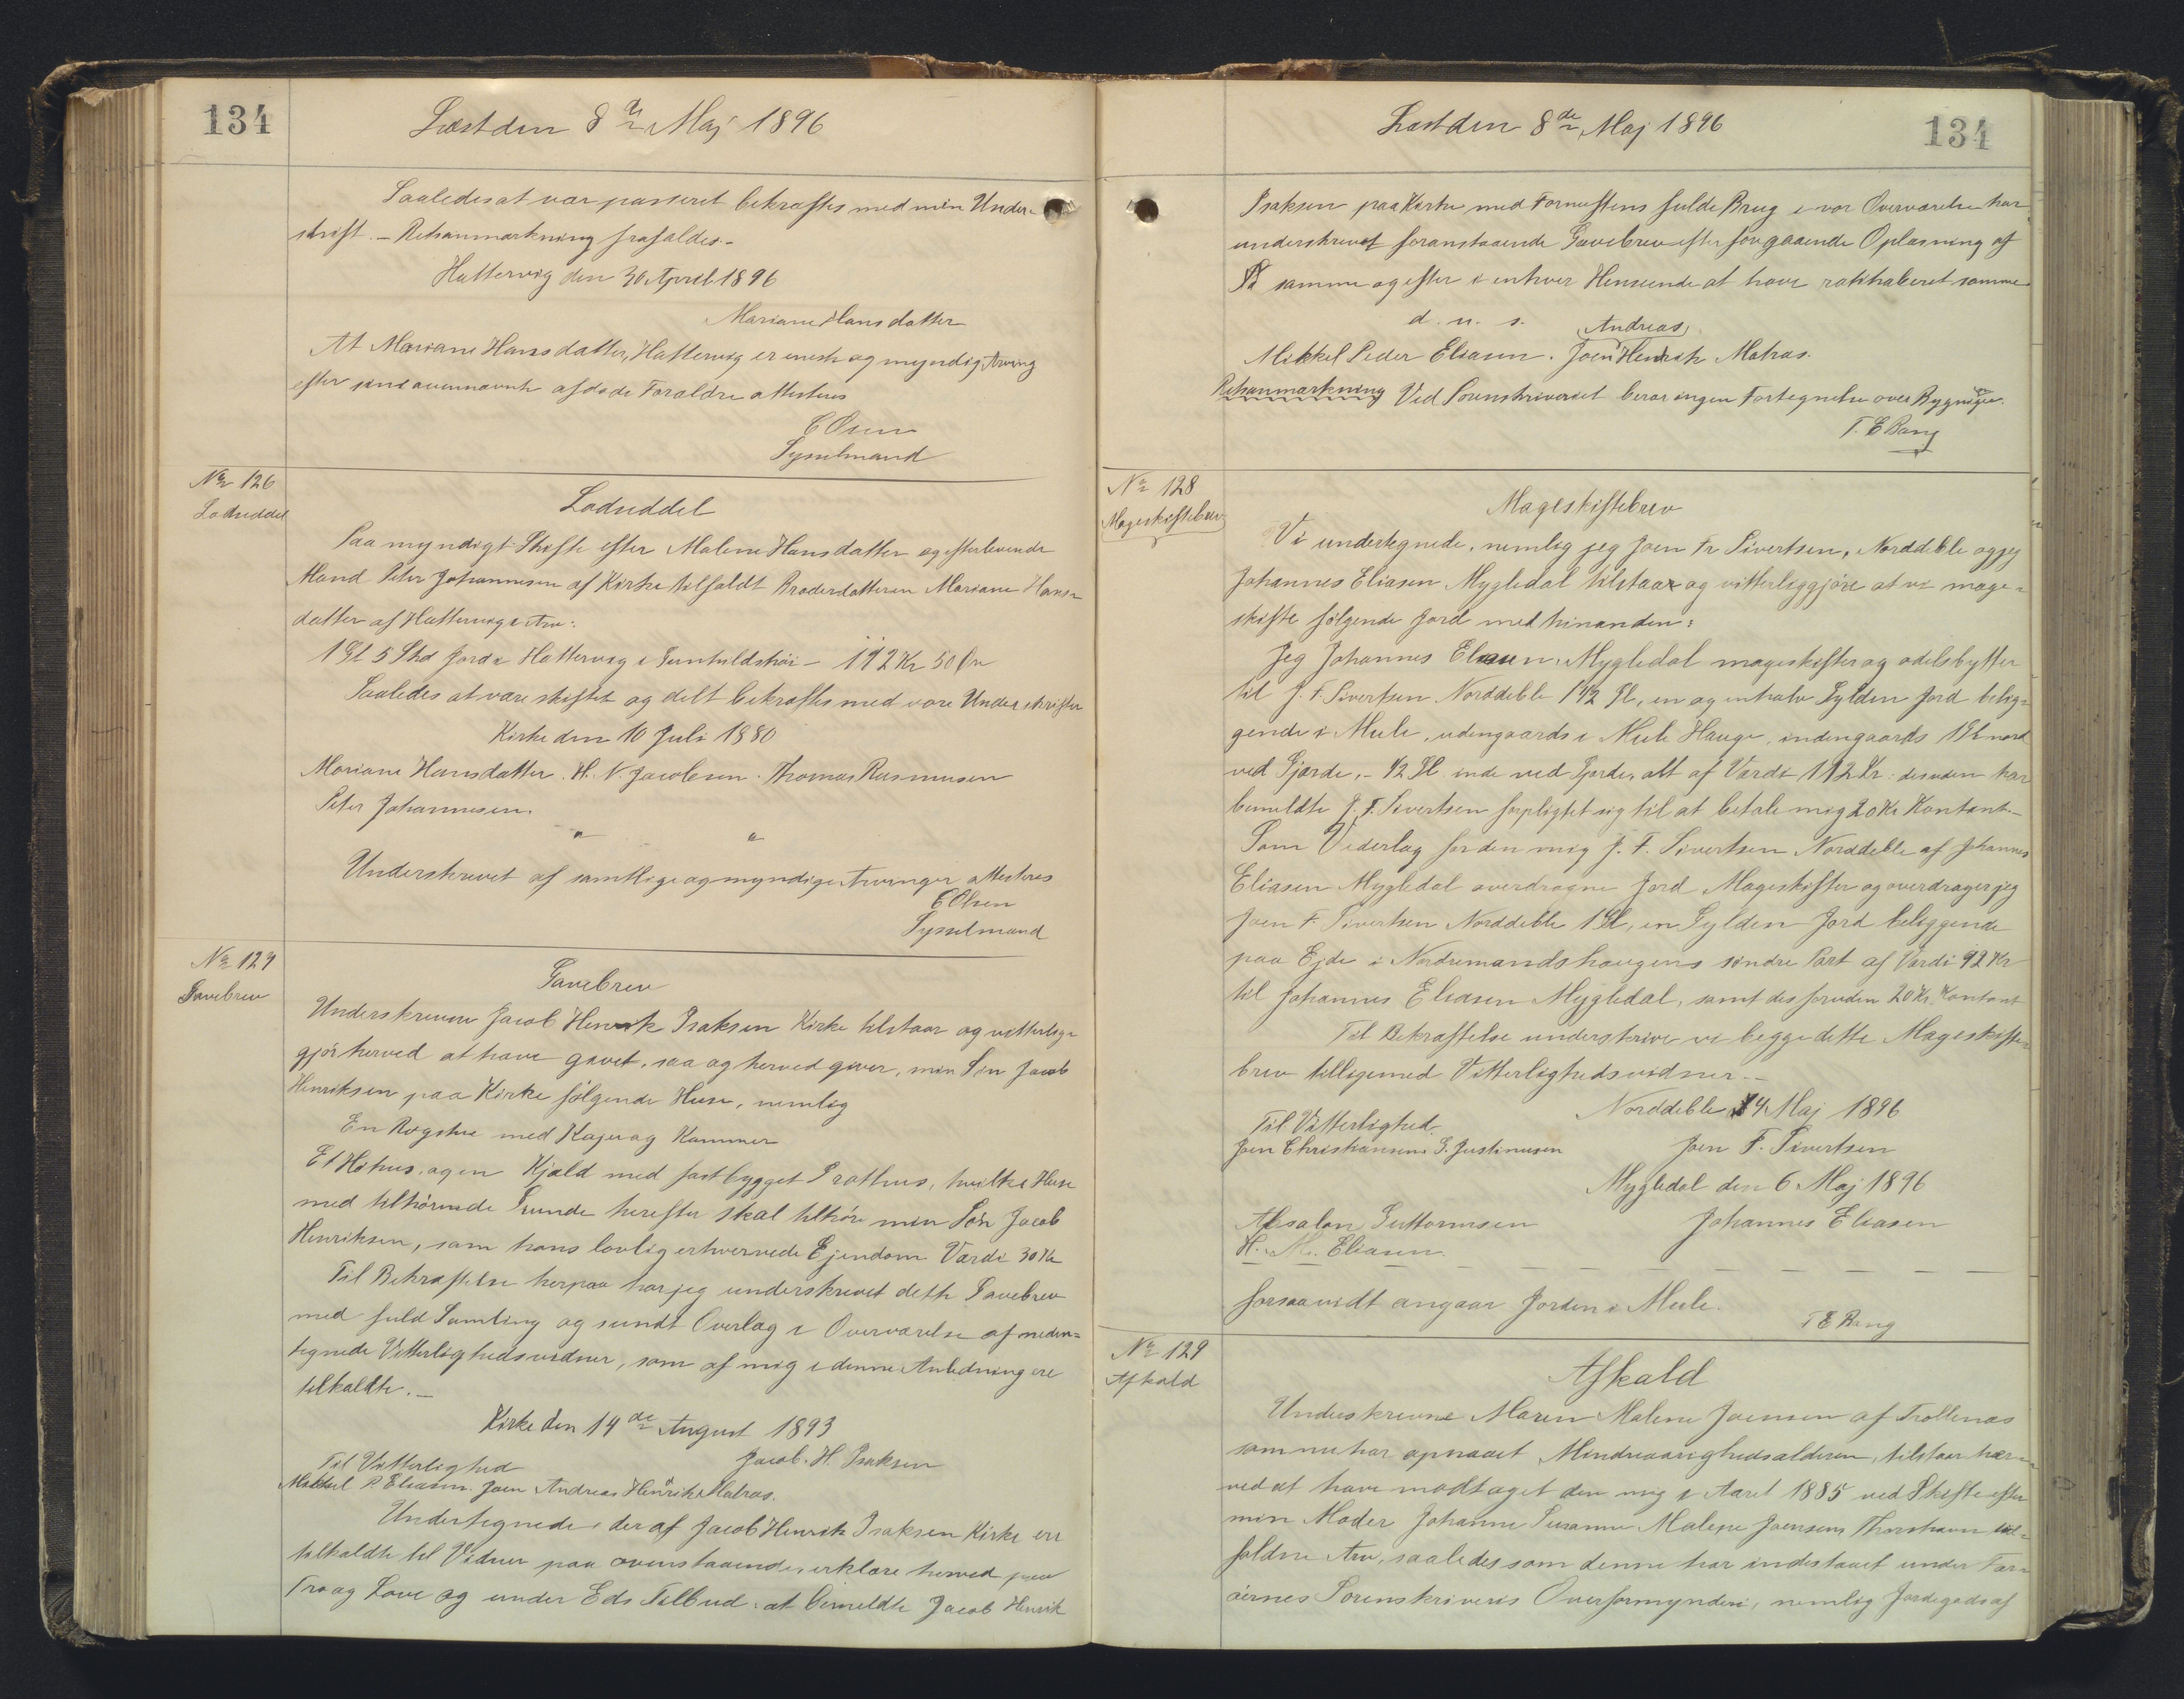 134
Læst den 8de Maj 1896
Saaledes at var passeret bekræftes med min Under-
skrift. - Retsanmærkning frafaldes.-
Hattervig den 30 April 1896
Mariane Hansdatter
At Mariane Hansdatter, Hattervig er eneste og myndig Arving
efter sine ovennævnte afdøde Forældre attesteres
C Olsen
Sysselmand
No 126
Lodseddel
Lodseddel
Paa myndigt Skifte efter Malene Hansdatter og efterlevende
Mand Peter Johannesen af Kirke tilfaldt Broderdatteren Mariane Hans-
datter af Hattervig i Arv:
1 Gl 5 Skd Jord i Hattervig i Gunhildshøi - 112 Kr 50 Øre
Saaledes at være skiftet og delt bekræftes med vore Underskrifter
Kirke den 10 Juli 1880
Mariane Hansdatter. H. N. Jacobsen. Thomas Rasmusen
Peter Johannesen.
" "
Underskrevet af samtlige og myndige Arvinger attesteres
C Olsen
Sysselmand
No 127
Gavebrev
Gavebrev
Underskrevne Jacob Henrik Isaksen Kirke tilstaar og vitterlig-
gjør herved at have givet, saa og herved giver, min Søn Jacob
Henriksen paa Kirke følgende Huse, nemlig
En Røgstue med Køjer og Kammer
Et Høhus, og en Kjæld med fastbygget Grothus, hvilke Huse
med tilhørende Grunde herefter skal tilhøre min Søn Jacob
Henriksen, som hans lovlig erhvervede Ejendom. Værdi 30 Kr
Til Bekræftelse herpaa har jeg underskrevet dette Gavebrev
med fuld Samling og sundt Overlæg i Overværelse af neden=
tegnede Vitterlighedsvidner, som af mig i denne Anledning ere
tilkaldte.-
Kirke den 14de August 1893
Til Vitterlighed Jacob. H. Isaksen
Mikkel P. Eliasen. Joen Andreas Henrik Matras.
Undertegnede, der af Jacob Henrik Isaksen Kirke ere
tilkaldte til Vidner paa ovenstaaende, erklære herved paa
Tro og Love og under Eds Tilbud, at bemeldte Jacob Henrik
Læst den 8de Maj 1896
134
Isaksen paa Kirke med Fornuftens fulde Brug i vor Overværelse har
underskrevet foranstaaende Gavebrev efter forgaaende Oplæsning af
samme og efter i enhver Henseende at have ratihaberet samme
d. u. s.
Andreas
Mikkel Peder Eliasen. Joen Henrik Matras.
Retsanmærkning Ved Sorenskriveriet beror ingen Fortegnelse over Bygninger.
T. E Bang
No 128
Mageskiftebrev
Mageskiftebrev
Vi undertegnede, nemlig jeg Joen Fr Sivertsen, Norddeble og jeg
Johannes Eliasen Mygledal tilstaar og vitterliggjøre at vi mage-
skifte følgende Jord med hinanden:
Jeg Johannes Eliasen, Mygledal mageskifter og odelsbytter
til J. F. Sivertsen Norddeble 1 1/2 Gl, en og enhalv Gylden Jord belig-
gende i Mule, udengaards i Mule Hauge, indengaards 1 Gl nord
ved Gjærde, - 1/2 Gl inde ved Gjerde, alt af Værdi 112 Kr. desuden har
bemeldte J. F. Sivertsen forpligtet sig til at betale mig 20 Kr Kontant.-
Som Vederlag for den mig J. F. Sivertsen Norddeble af Johannes
Eliasen Mygledal overdragne Jord Mageskifter og overdrager jeg
Joen F. Sivertsen Norddeble 1 Gl, en Gylden Jord beliggende
paa Ejde i Nordremandshaugens søndre Part af Værdi 92 Kr
til Johannes Eliasen Mygledal, samt desforuden 20 Kr. Kontant
Til Bekræftelse underskrive vi begge dette Mageskifte-
brev tilligemed Vitterlighedsvidner.-
Norddeble 4 Maj 1896
Til Vitterlighed
Joen Christiansen. G. Justinusen Joen F. Sivertsen
Mygledal den 6 Maj 1896
Absalon Guttormsen Johannes Eliasen
H. M. Eliasen.
forsaavidt angaar Jorden i Mule.
T E Bang
No 129
Afkald
Afkald
Underskrevne Maren Malene Joensen af Trollenæs
som nu har opnaaet Mindreaarighedsalderen, tilstaar her-
ved at have modtaget den mig i Aaret 1885 ved Skifte efter
min Moder Johanne Susanne Malene Joensens Thorshavn til-
faldne Arv, saaledes som denne har indestaaet under Fær-
øernes Sorenskriveris Overformynderi, nemlig Jordegods af